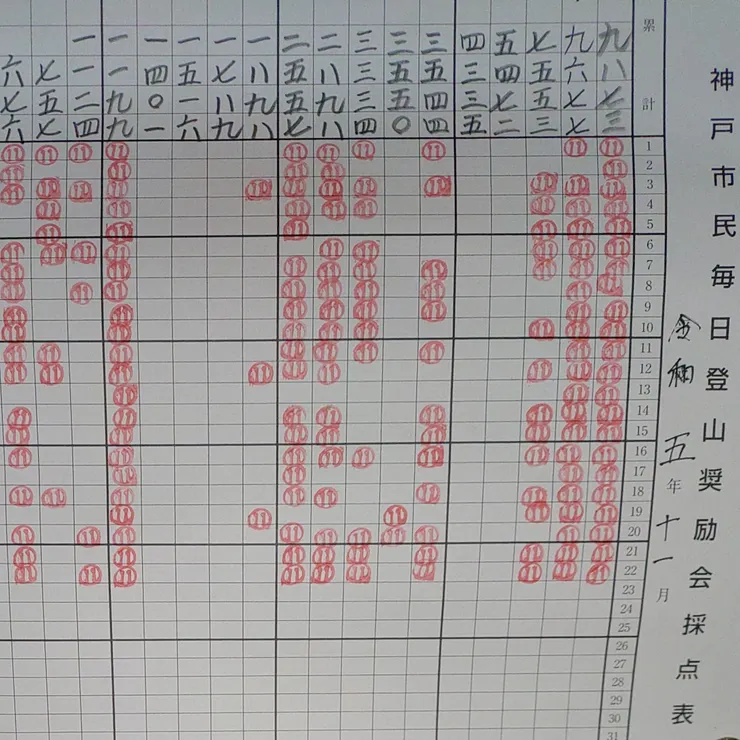 神戸市民毎日登山奨励会採点表
令和五年十一月
累計
1
2
3
4
5
6
7
8
9
10
11
12
13
14
15
16
17
18
19
20
21
22
23
24
25
26
27
28
29
30
31
九八七三
九六七七
七五五三
五四七二
四三三五
三五四四
三五五〇
三三三四
二八九八
二五五七
一八九八
一七八九
一五一六
一四〇一
一一九九
一一二四
七五七
六七六